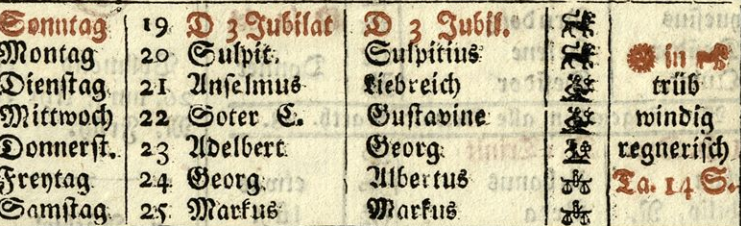 Sonntag 19 D 3 Jubilat D 3 Jubil.
Montag 20 Sulpit. Sulpitius in
Dienstag 21 Anselmus Liebreich trüb
Mittwoch 22 Soter C. Gustavine windig
Donnerst. 23 Adelbert Georg regnerisch
Freytag 24 Georg Albertus Ta. 14 S.
Samstag 25 Markus Markus